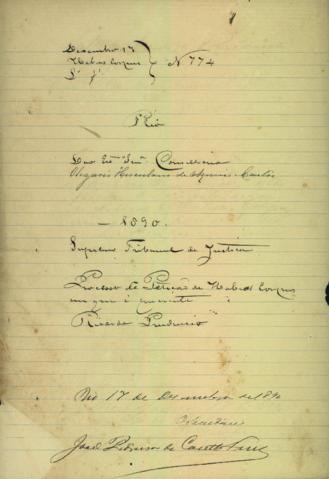 Dezembro 17
Habeas Corpus
N 774
Rio
Conselheiro
Olegario Herculano de Aquino Castro
— 1890.
Supremo Tribunal de Justiça
Processo de Petição de Habeas Corpus
em que é paciente
Ricardo
Rio 17 de Dezembro de 1890
O Secretario
João Pedreira do Coutto Ferraz